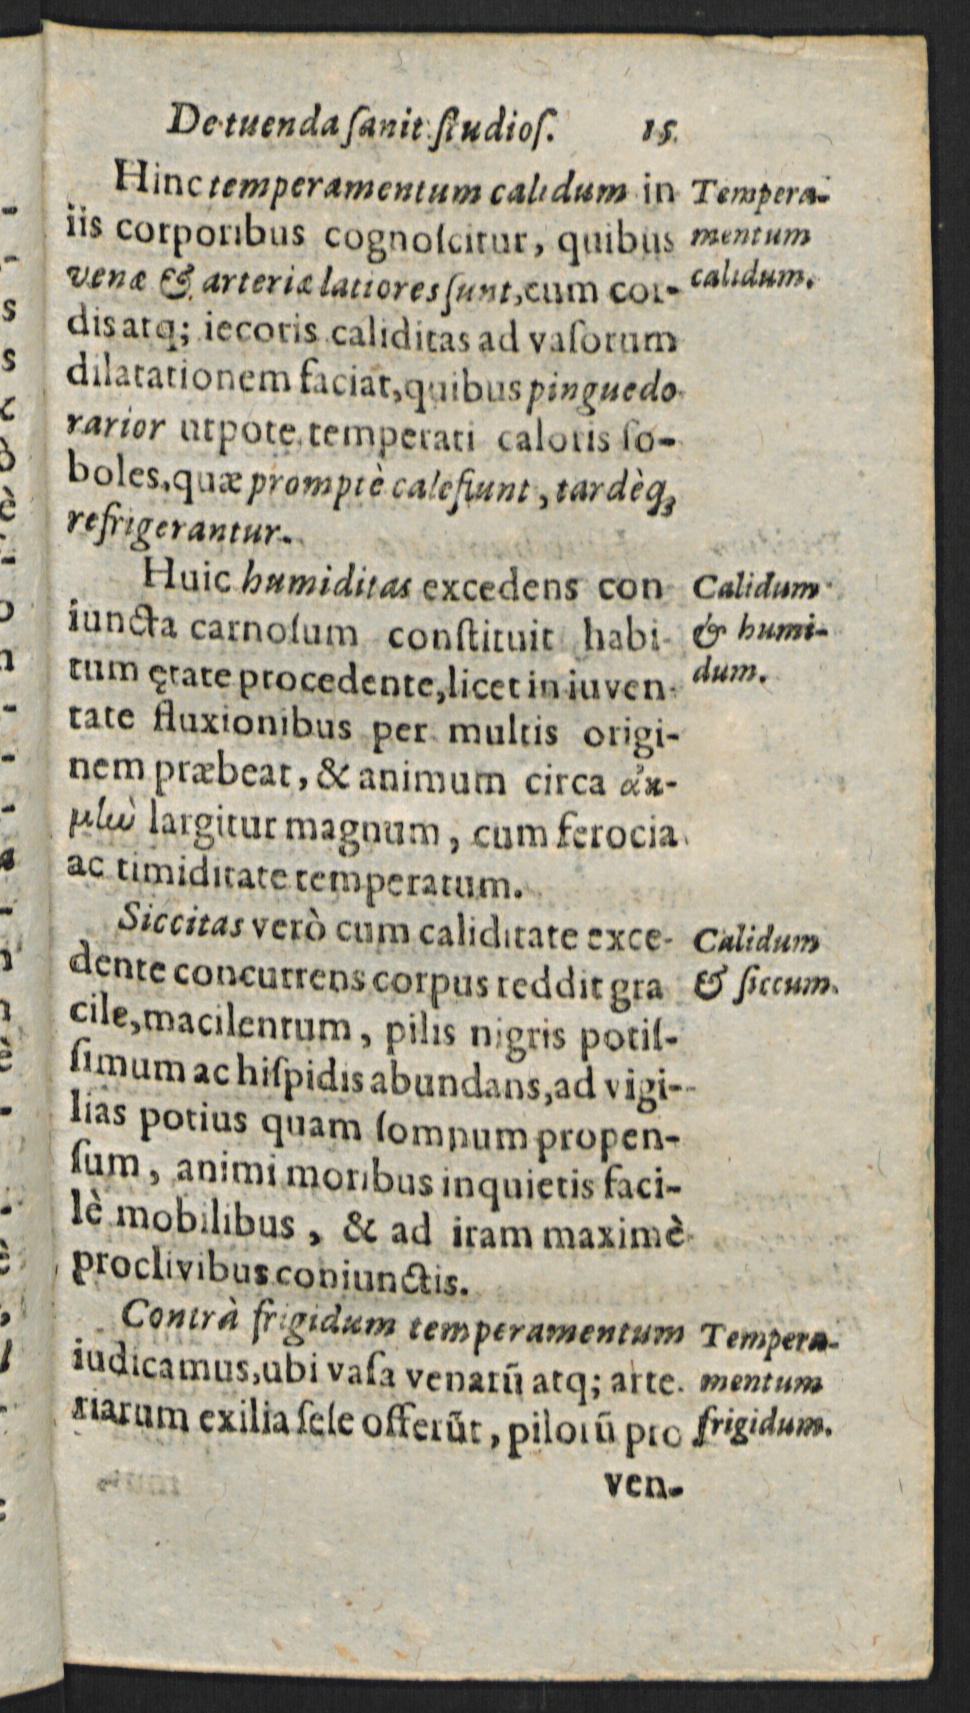 De tuenda ſanit. ſtudioſ. 15.
Hinc temperamentum calidum in
iis corporibus cognoſcitur, quibus
venæ & arteriæ latiores ſunt, cum cor-
dis atq; iecoris caliditas ad vaſorum
dilatationem faciat, quibus pinguedo
rarior utpote temperati caloris ſo-
boles, quæ promptè calefiunt, tardèq;
refrigerantur.
Tempera-
mentum
calidum.
Huic humiditas excedens con
iuncta carnoſum conſtituit habi-
tum ętate procedente, licet in iuven-
tate fluxionibus per multis origi-
nem præbeat, & animum circa ἀκ-
μὴν largitur magnum, cum ferocia
ac timiditate temperatum.
Calidum
& humi-
dum.
Siccitas verò cum caliditate exce-
dente concurrens corpus reddit gra
cile, macilentum, pilis nigris potiſ-
ſimum ac hiſpidis abundans, ad vigi-
lias potius quam ſomnum propen-
ſum, animi moribus inquietis faci-
lè mobilibus, & ad iram maximè
proclivibus coniunctis.
Calidum
& ſiccum.
Contrà frigidum temperamentum
iudicamus, ubi vaſa venarũ atq; arte-
riarum exilia ſeſe offerũt, pilorũ pro
Tempera-
mentum
frigidum.
ven-